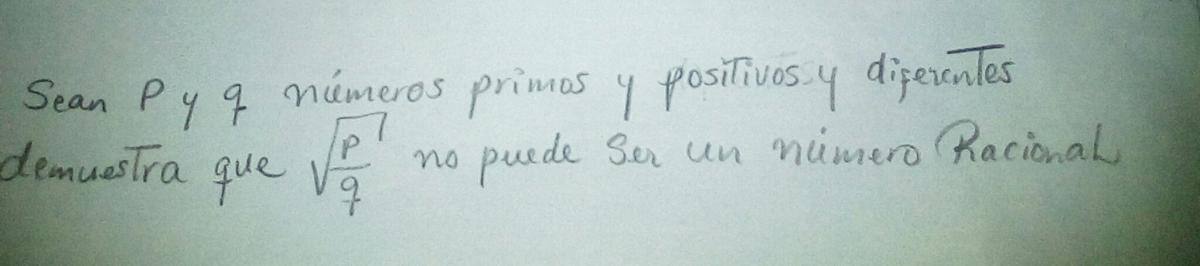 Sean P y q números primos y positivos y diferentes
demuestra que √(P/q) no puede ser un número Racional